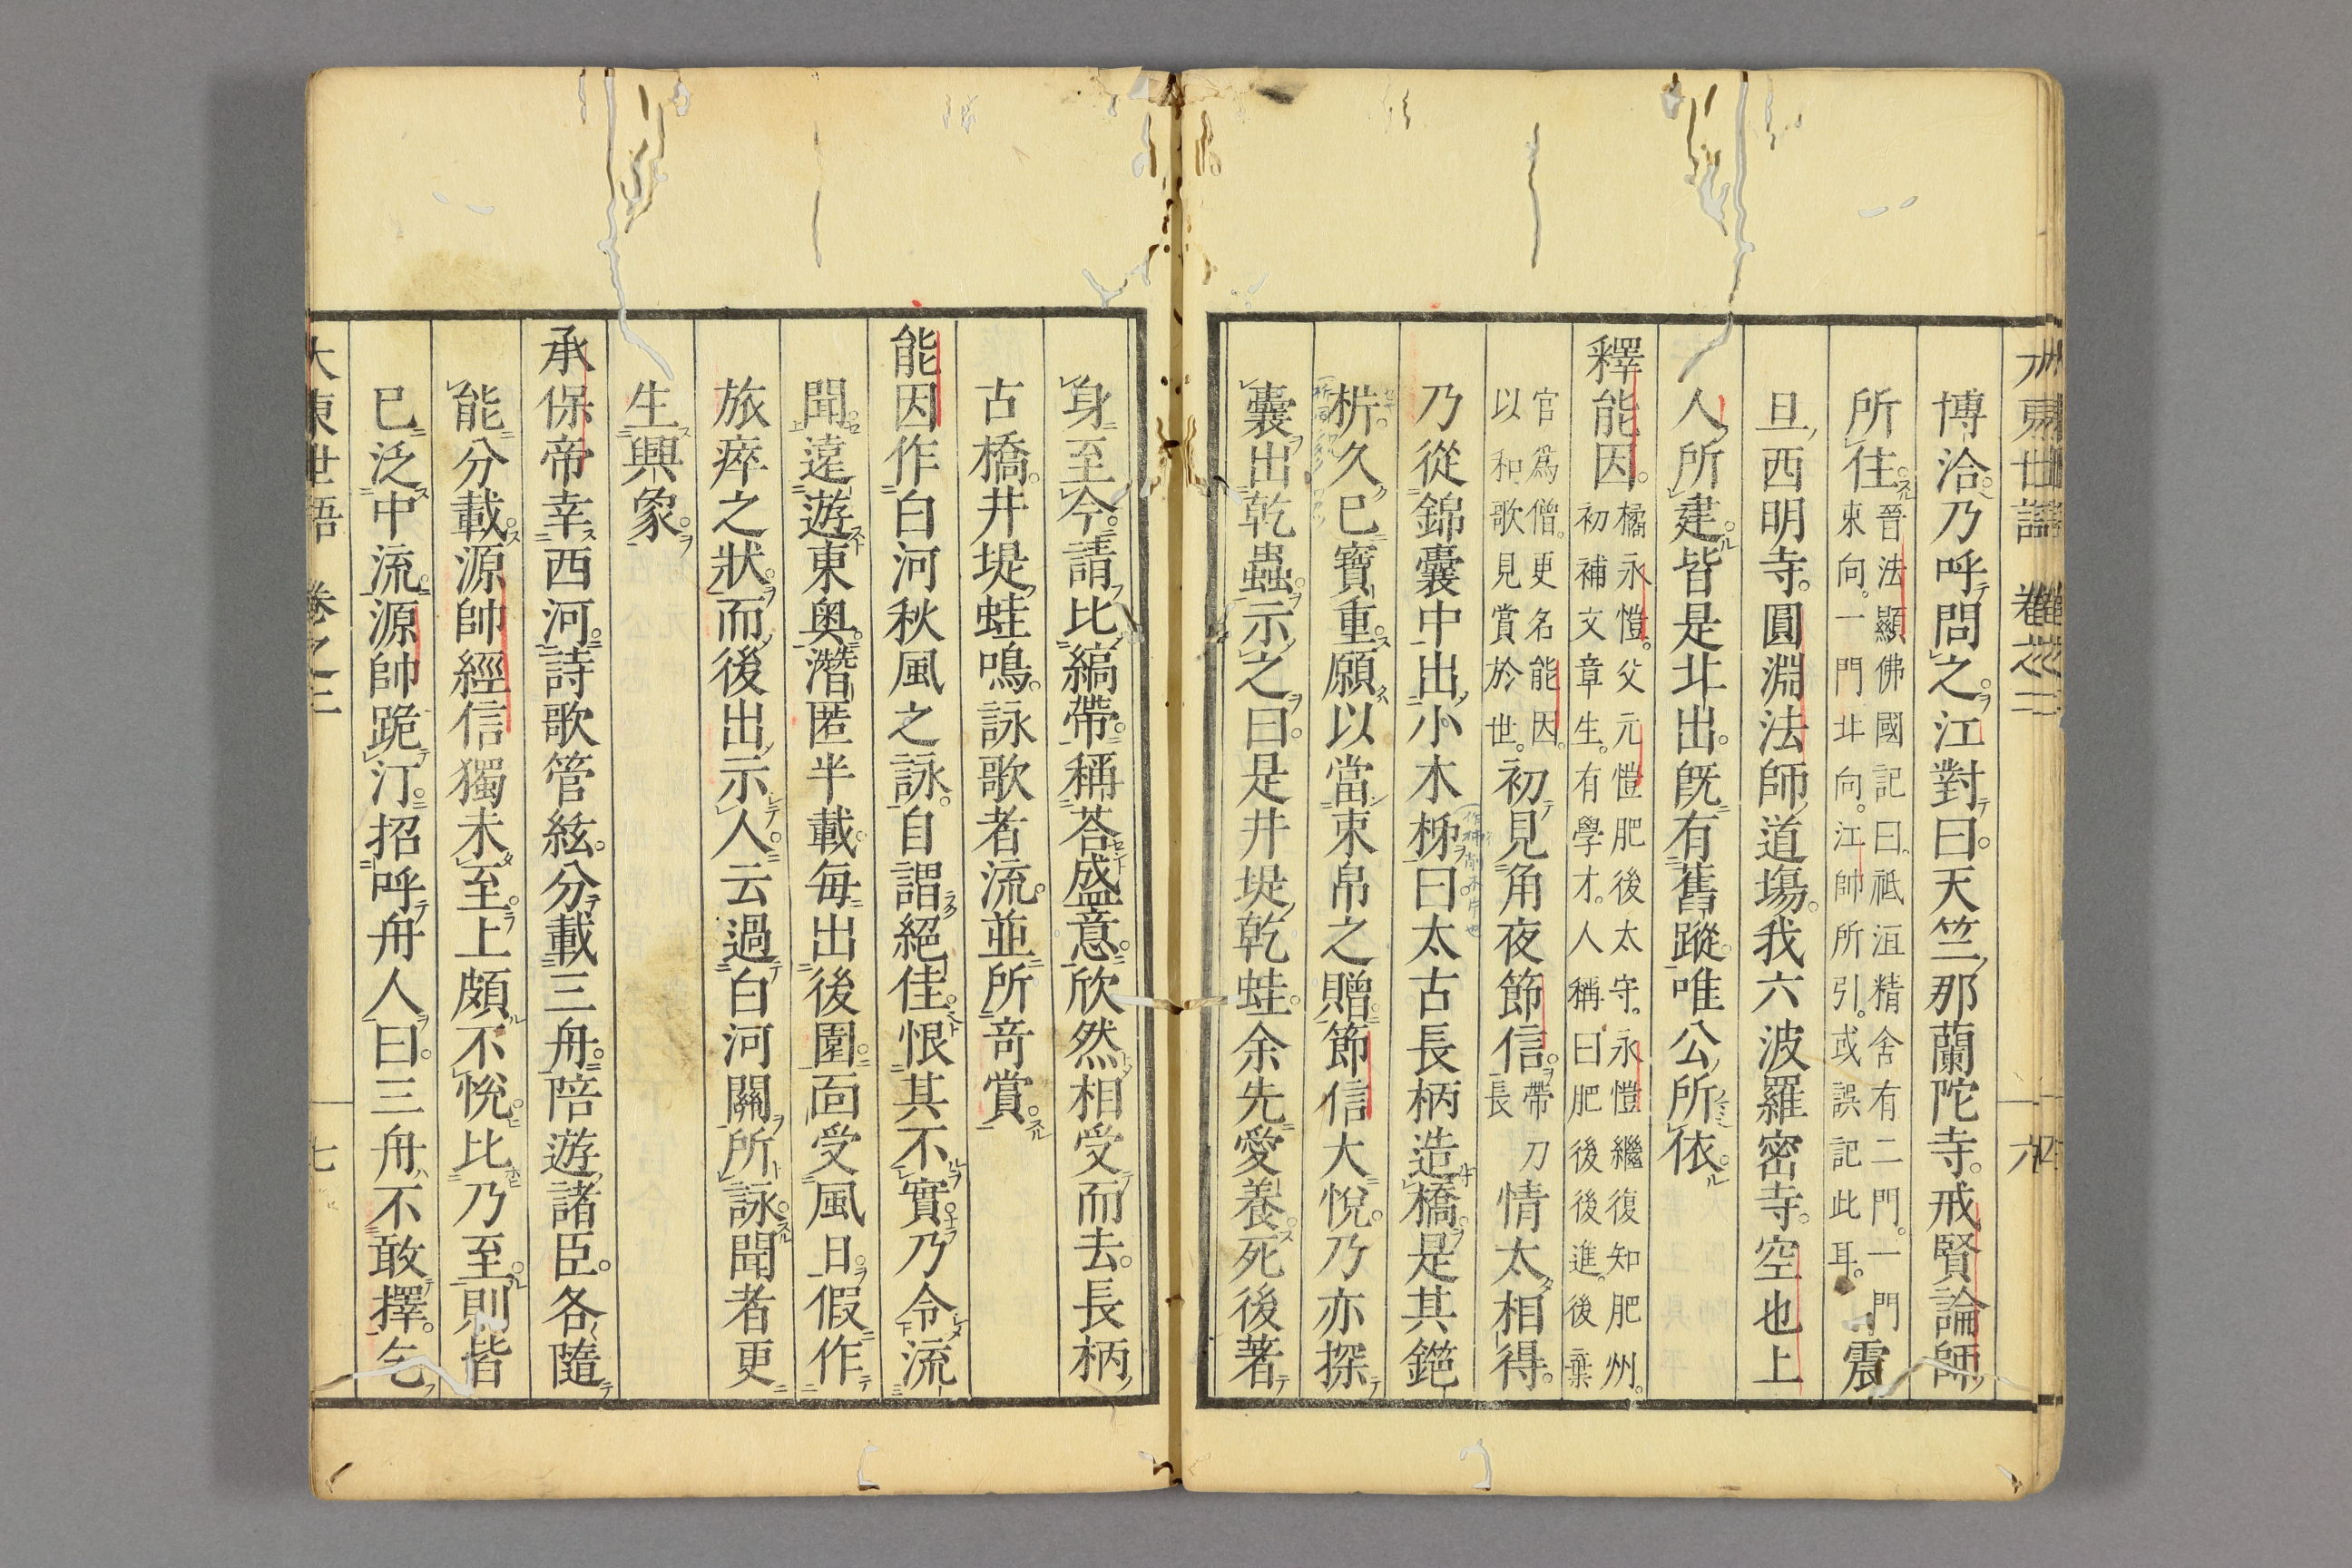 博洽乃呼問之江對曰天竺那蘭陀寺戒賢論師
所住晉法顯佛國記曰祗洹精舍有二門一門
東向一門北向江帥所引或誤記此耳震
旦西明寺圓淵法師道場我六波羅密寺空也上
人所建皆是北出既有舊蹤唯公所依
釋能因橘永愷父元愷肥後太守永愷繼復知肥州
初補文章生有學才人稱曰肥後後進後棄
官爲僧更名能因
以和歌見賞於世初見角夜節信帶刀
長情太相得
乃從錦囊中出小木柹曰太古長柄造橋是其鉋
枿久已寶重願以當束帛之贈節信大悅乃亦探
囊出乾蟲示之曰是井堤乾蛙余先愛養死後著
身至今請比縞帶稱荅盛意欣然相受而去長柄
古橋井堤蛙鳴詠歌者流並所奇賞
能因作白河秋風之詠自謂絕佳恨其不實乃令流
聞遠遊東奧潛匿半載每出後園面受風日假作
旅瘁之狀而後出示人云過白河關所詠聞者更
生興象
承保帝幸西河詩歌管絃分載三舟陪遊諸臣各隨
能分載源帥經信獨未至上頗不悅比乃至則皆
已泛中流源帥跪汀招呼舟人曰三舟不敢擇乞
大東世語 卷之三 七